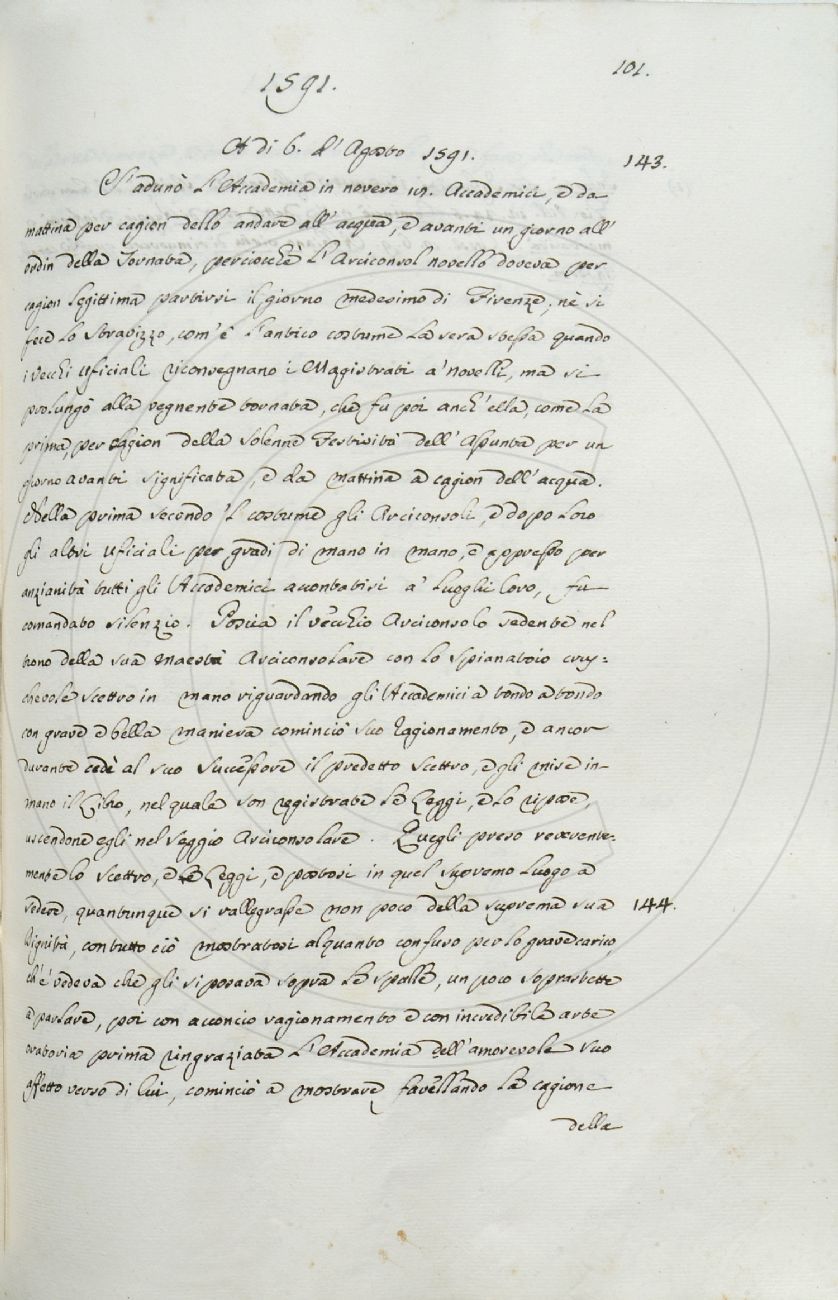 101.
1591.
A dì 6. d'Agosto 1591.
143.
S'adunò l'Accademia in novero di Accademici, e da
mattina per cagion dello andare all'acqua, e avanti un giorno all'
ordin della Tornata, perciocchè l'Arciconsol novello doveva per
cagion legittima partirsi il giorno medesimo di Firenze, nè si
fece lo Stravizzo, com'è l'antico costume la sera stessa quando
i Vecchi Uficiali riconsegnano i Magistrati a' novelli, ma si
prolungò alla vegnente tornata, che fu poi anch'ella, come la
prima, per cagion della solenne Festività dell'Assunta per un
giorno avanti significata, e da mattina a cagion dell'acqua.
Nella prima secondo 'l costume gli Arciconsoli, e dopo loro
gli altri Uficiali per gradi di mano in mano, e appresso per
anzianità tutti gli Accademici accontatisi a' luoghi loro, fu
comandato silenzio. Poscia il vecchio Arciconsolo sedente nel
trono della sua maestà Arciconsolare con lo spianatoio crus=
chevole scettro in mano riguardando gli Accademici a tondo a tondo
con grave e bella maniera cominciò suo ragionamento, e ancor
durante cedè al suo Successore il predetto Scettro, e gli mise in-
mano il Libro, nel quale son registrate le Leggi, e lo ripose,
uscendone egli nel seggio Arciconsolare. Quegli preso reverente=
mente lo scettro, e le Leggi, e postosi in quel supremo luogo a
sedere, quantunque si rallegrasse non poco della suprema sua
144.
Dignità, contutto ciò mostratosi alquanto confuso per lo grave carico,
ch'e' vedeva che gli si posava sopra le spalle, un poco soprastette
a parlare, poi con acconcio ragionamento e con incredibile arte
oratoria prima ringraziata l'Accademia dell'amorevole suo
affetto verso di lui, cominciò a mostrare favellando la cagione
della